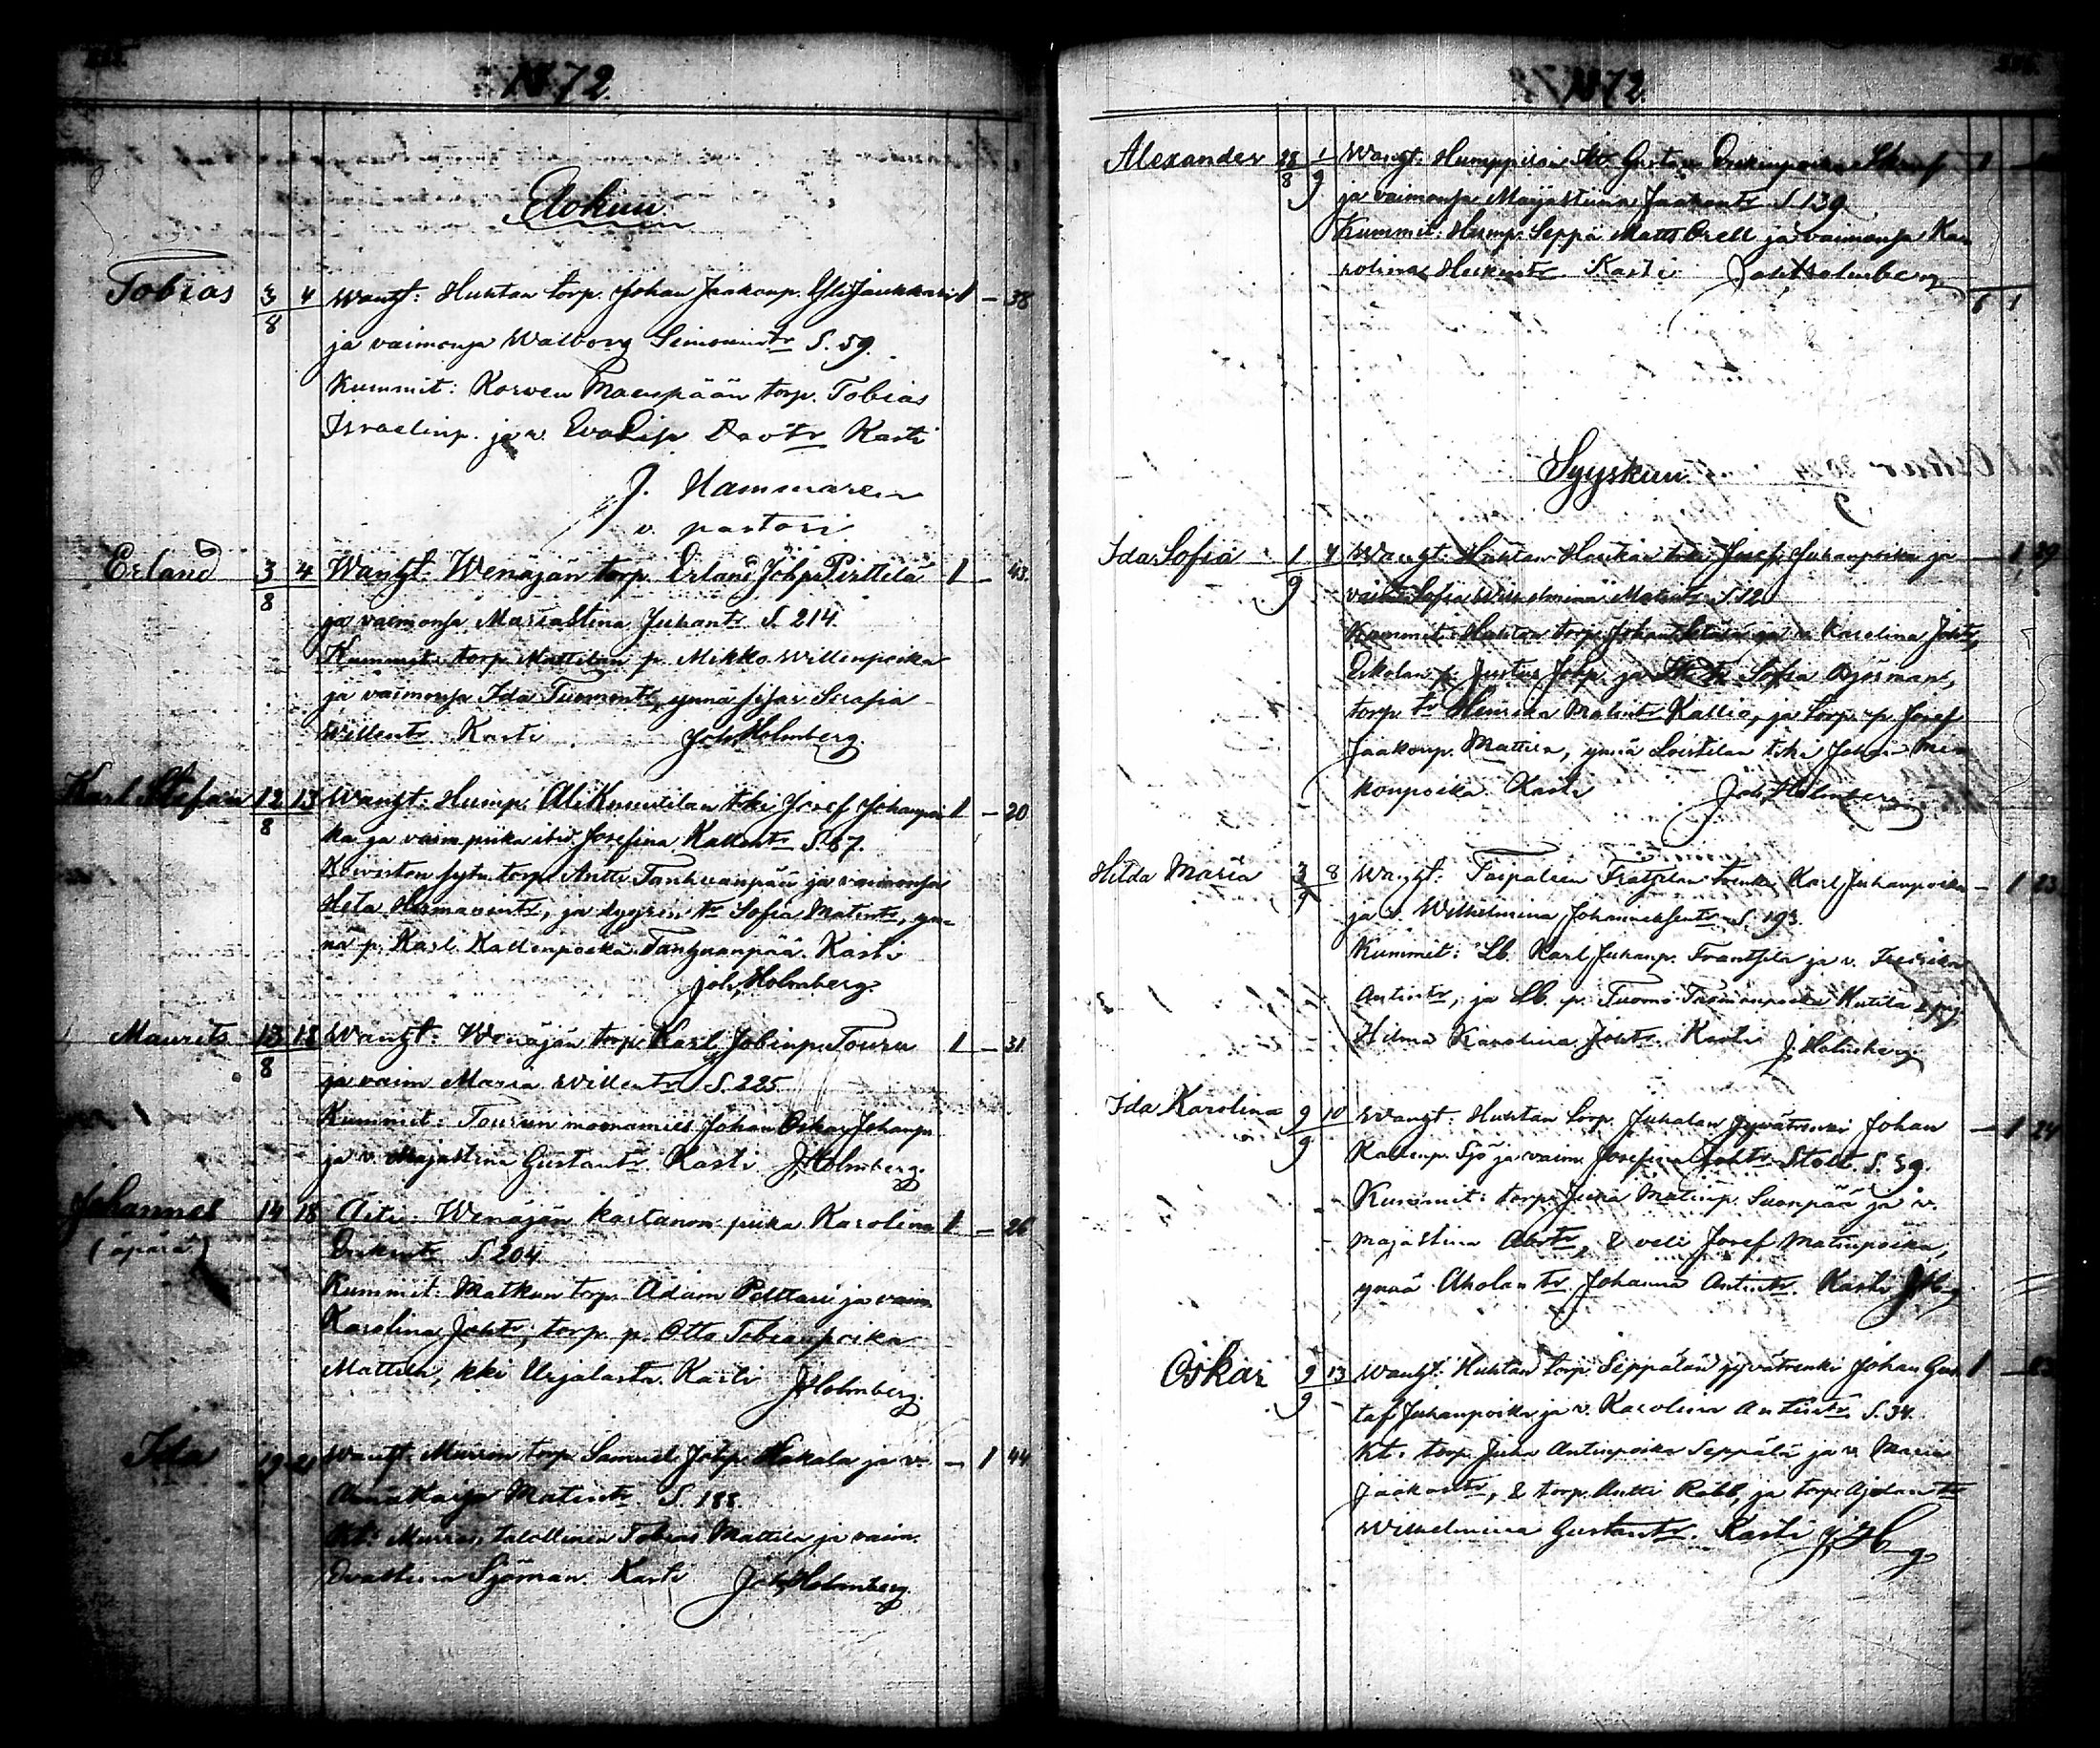 1872.
Elokuu.
Tobias 3/8 4 Wanht: Huhtan torp. Johan Jaakonp. Yli Jaukkari 1 – 38
ja vaimonsa Walborg Simonintr S. 59.
Kummit: Korven Maenpään torp. Tobias
Israelinp. ja v. Kasti
J. Hammaren
v. pastori
Erland 3/8 4 Wanht: Wenäjän torp. Erland Johp. Pirttilä 1 – 43
ja vaimonsa Maria Stina Juhantr S. 214.
Kummit: torp. Mattilan p. Mikko Willenpoika
ja vaimonsa Ida Tuomontr, ynnä sisar Serafia
Willentr. Kasti Joh. Holmberg.
Karl Stefan 12/8 13 Wanht: Hump. Ali Kusentilan Josef Johanpoi 1 – 20
ka ja vaim piika ibid. Josefina Kallentr S. 87.
Koiviston torp. Antti Tanhuanpää ja vaimonsa
Heta Hermanintr, ja tr Sofia Matintr, yn-
nä p. Karl Kallenpoika Tanhuanpää. Kasti
Joh. Holmberg.
Maurits 13/8 18 Wanht: Wenäjän torp. Karl Jobinp. Touru 1 – 31
ja vaim Maria Willentr S. 225
Kummit: Tourun moonamies Johan Oskar Johanp.
ja v. Majastina Gustavtr. Kasti J. Holmberg.
Johannes 14 18 Äiti: Wenäjän kartanon piika Karolina 1 – 26
(äpärä) Erikintr S. 204.
Kummit: Matkun torp. Adam Pelttari ja vaim.
Karolina Johtr, torp. p. Otto Tobianpoika
Mattila, kki Urjalasta. Kasti J. Holmberg.
Ida 19 21 Wanht: Murron torp. Samuel Johp. Hakala ja v. – 1 44
Annakaisa Matintr. S. 188.
Kt: Murron talollinen Tobias Mattila ja vaim.
Evastina Sjöman. Kasti Joh. Holmberg.
1872.
Alexander 28/8 1/9 Wanht: Humppilan Gustav Erikinpoika 1
ja vaimonsa Maijastiina Jaakontr S. 139
Kummit: Hump. Seppä Matts Orell ja vaimonsa Ka-
rolina Heikintr. Kasti Joh. Holmberg
6 1
Syyskuu.
Ida Sofia 1/9 4 Wanht: Huhtan Haukan Josef Juhanpoika ja – 1 39
vaim. Sofia Wilhelmina Matintr S. 12
Kummit: Huhtan torp. Johan ja v. Karolina Johtr,
Eskolan p. Justus Johp. ja Sofia Björman,
torp. tr Henrika Matintr Kallio, ja torp. p. Josef
Jaakonp. Mattila, ynnä
konpoika. Kasti Joh. Holmberg
Hilda Maria 3/9 8 Wanht: Taipaleen renki Karl Juhanpoika – 1 23
ja v. Wilhelmina Johanneksentr S. 193
Kummit: Lb. Karl Juhanp. Frantsila ja v. Fredrika
Antintr, ja Lb. p. Tuomo Tuomonpoika Kutila
Hilma Karolina Johtr. Kasti J. Holmberg.
Ida Karolina 9/9 10 Wanht: Huhtan torp. Juhalan jyvätrenki Johan – 1 24
Kallenp. Sjö ja vaim. Josefina Johtr Stolt S. 59.
Kummit: torp. Juha Matinp. Suonpää ja v.
Majastina Abrtr, & veli Josef Matinpoika,
ynnä Aholan tr Johanna Antintr. Kasti JHbg
Oskar 9/9 13 Wanht: Huhtan torp. Seppälän jyvätrenki Johan Gus 1 –
taf Juhanpoika ja v. Karolina Antintr. S. 34.
Kt: torp. Juha Antinpoika Seppälä ja v. Maria
Jaakontr, & torp. Antti Rabb, ja torp. Ajolan tr
Wilhelmina Gustavtr. Kasti JHbg